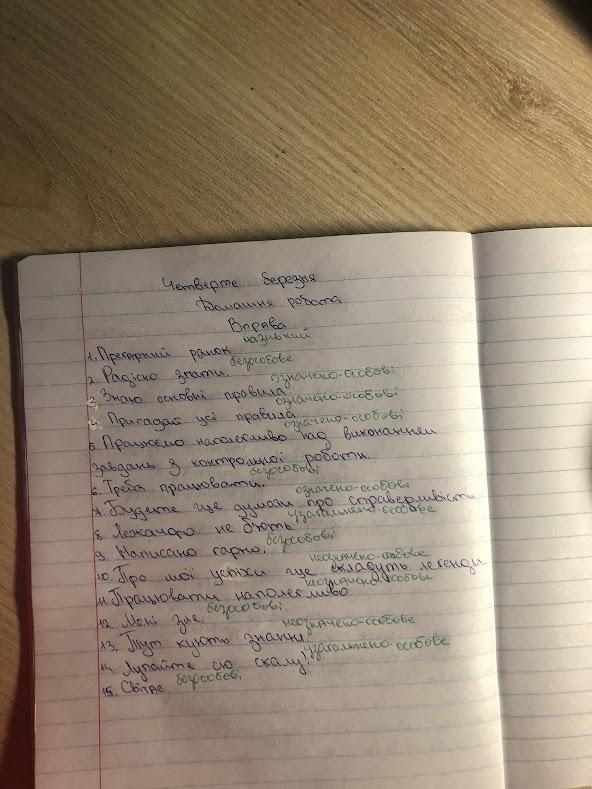 Четверте березня
Домашня робота
Вправа
називний
1. Прегарний ранок
безособове
2. Радісно знати.
означено-особові
3. Знаю основні правила.
означено-особові
4. Пригадай усі правила
означено-особові
5. Працюємо наполегливо над виконанням
завдань з контрольної роботи.
безособові
6. Треба працювати.
означено-особові
7. Будете ще думати про справедливість
узагальнено-особове
8. Лежачого не б'ють
безособові
9. Написано гарно.
неозначено-особове
10. Про мої успіхи ще складуть легенди.
неозначено-особове
11. Працювати наполегливо
безособові.
12. Мені зле
неозначено-особове
13. Тут кують знання
узагальнено-особове
14. Лупайте сю скалу!
безособові
15. Світає.